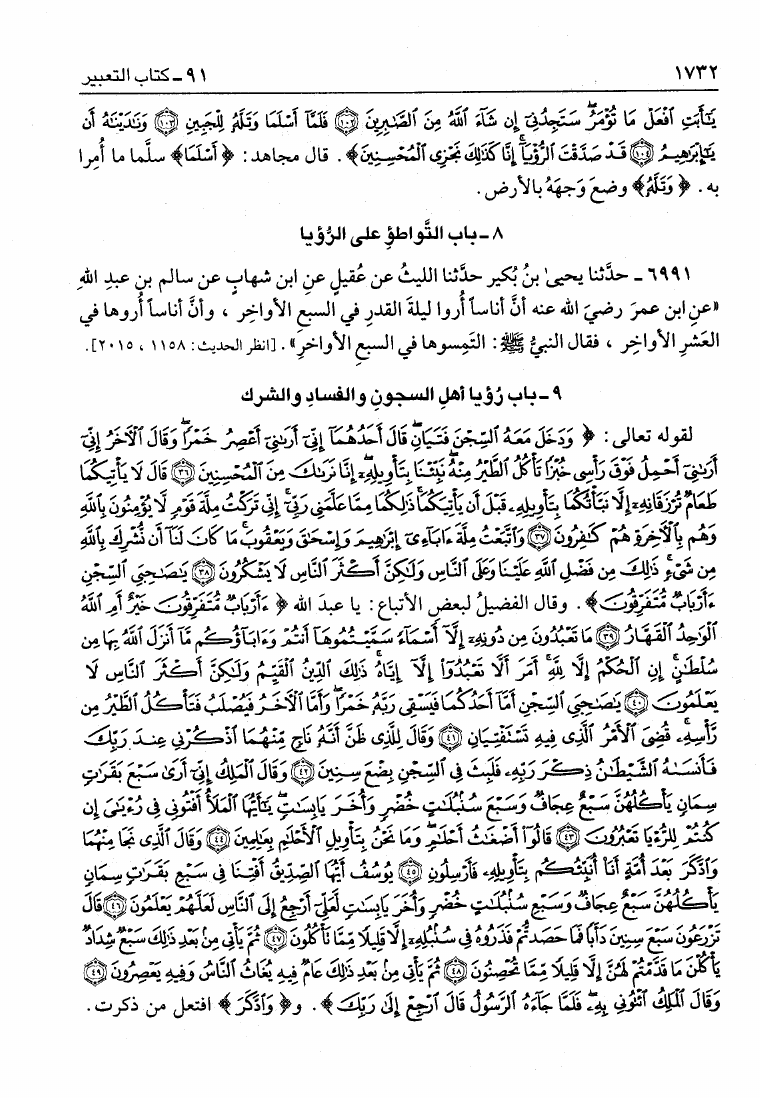 ١٧٣٢
٩١ ـ كتاب التعبير
يَٰٓأَبَتِ ٱفْعَلْ مَا تُؤْمَرُۖ سَتَجِدُنِىٓ إِن شَآءَ ٱللَّهُ مِنَ ٱلصَّٰبِرِينَ ﴿١٠٢﴾ فَلَمَّآ أَسْلَمَا وَتَلَّهُۥ لِلْجَبِينِ ﴿١٠٣﴾ وَنَٰدَيْنَٰهُ أَن
يَٰٓإِبْرَٰهِيمُ ﴿١٠٤﴾ قَدْ صَدَّقْتَ ٱلرُّءْيَآۚ إِنَّا كَذَٰلِكَ نَجْزِى ٱلْمُحْسِنِينَ﴾ . قال مجاهد: ﴿ أَسْلَمَا﴾ سلَّما ما أُمِرا
به. ﴿ وَتَلَّهُۥ﴾ وضعَ وَجهَهُ بالأرض.
٨ ـ باب التَّواطؤِ على الرُّؤيا
٦٩٩١ ـ حدَّثنا يحيىٰ بنُ بُكير حدَّثنا الليثُ عن عُقيلٍ عنِ ابن شهابٍ عن سالم بنِ عبدِ اللهِ
«عنِ ابن عمرَ رضيَ الله عنه أنَّ أناساً أُروا ليلةَ القدرِ في السبعِ الأواخِر ، وأنَّ أناساً أُروها في
العَشرِ الأواخِر ، فقال النبيُّ ﷺ: التَمِسوها في السبعِ الأواخرِ». [انظر الحديث: ١١٥٨ ، ٢٠١٥].
٩ ـ باب رُؤيا أهلِ السجونِ والفسادِ والشرك
لقوله تعالى: ﴿ وَدَخَلَ مَعَهُ ٱلسِّجْنَ فَتَيَانِۖ قَالَ أَحَدُهُمَآ إِنِّىٓ أَرَىٰنِىٓ أَعْصِرُ خَمْرًاۖ وَقَالَ ٱلْءَاخَرُ إِنِّىٓ
أَرَىٰنِىٓ أَحْمِلُ فَوْقَ رَأْسِى خُبْزًا تَأْكُلُ ٱلطَّيْرُ مِنْهُۖ نَبِّئْنَا بِتَأْوِيلِهِۦٓۖ إِنَّا نَرَىٰكَ مِنَ ٱلْمُحْسِنِينَ ﴿٣٦﴾ قَالَ لَا يَأْتِيكُمَا
طَعَامٌ تُرْزَقَانِهِۦٓ إِلَّا نَبَّأْتُكُمَا بِتَأْوِيلِهِۦ قَبْلَ أَن يَأْتِيَكُمَاۚ ذَٰلِكُمَا مِمَّا عَلَّمَنِى رَبِّىٓۚ إِنِّى تَرَكْتُ مِلَّةَ قَوْمٍ لَّا يُؤْمِنُونَ بِٱللَّهِ
وَهُم بِٱلْءَاخِرَةِ هُمْ كَٰفِرُونَ ﴿٣٧﴾ وَٱتَّبَعْتُ مِلَّةَ ءَابَآءِىٓ إِبْرَٰهِيمَ وَإِسْحَٰقَ وَيَعْقُوبَۚ مَا كَانَ لَنَآ أَن نُّشْرِكَ بِٱللَّهِ
مِن شَىْءٍۚ ذَٰلِكَ مِن فَضْلِ ٱللَّهِ عَلَيْنَا وَعَلَى ٱلنَّاسِ وَلَٰكِنَّ أَكْثَرَ ٱلنَّاسِ لَا يَشْكُرُونَ ﴿٣٨﴾ يَٰصَٰحِبَىِ ٱلسِّجْنِ
ءَأَرْبَابٌ مُّتَفَرِّقُونَ﴾. وقال الفضيلُ لبعضِ الأتباع: يا عبدَ الله ﴿ ءَأَرْبَابٌ مُّتَفَرِّقُونَ خَيْرٌ أَمِ ٱللَّهُ
ٱلْوَٰحِدُ ٱلْقَهَّارُ ﴿٣٩﴾ مَا تَعْبُدُونَ مِن دُونِهِۦٓ إِلَّآ أَسْمَآءً سَمَّيْتُمُوهَآ أَنتُمْ وَءَابَآؤُكُم مَّآ أَنزَلَ ٱللَّهُ بِهَا مِن
سُلْطَٰنٍۚ إِنِ ٱلْحُكْمُ إِلَّا لِلَّهِۚ أَمَرَ أَلَّا تَعْبُدُوٓا۟ إِلَّآ إِيَّاهُۚ ذَٰلِكَ ٱلدِّينُ ٱلْقَيِّمُ وَلَٰكِنَّ أَكْثَرَ ٱلنَّاسِ لَا
يَعْلَمُونَ ﴿٤٠﴾ يَٰصَٰحِبَىِ ٱلسِّجْنِ أَمَّآ أَحَدُكُمَا فَيَسْقِى رَبَّهُۥ خَمْرًاۖ وَأَمَّا ٱلْءَاخَرُ فَيُصْلَبُ فَتَأْكُلُ ٱلطَّيْرُ مِن
رَّأْسِهِۦۚ قُضِىَ ٱلْأَمْرُ ٱلَّذِى فِيهِ تَسْتَفْتِيَانِ ﴿٤١﴾ وَقَالَ لِلَّذِى ظَنَّ أَنَّهُۥ نَاجٍ مِّنْهُمَا ٱذْكُرْنِى عِندَ رَبِّكَ
فَأَنسَىٰهُ ٱلشَّيْطَٰنُ ذِكْرَ رَبِّهِۦ فَلَبِثَ فِى ٱلسِّجْنِ بِضْعَ سِنِينَ ﴿٤٢﴾ وَقَالَ ٱلْمَلِكُ إِنِّىٓ أَرَىٰ سَبْعَ بَقَرَٰتٍ
سِمَانٍ يَأْكُلُهُنَّ سَبْعٌ عِجَافٌ وَسَبْعَ سُنۢبُلَٰتٍ خُضْرٍ وَأُخَرَ يَابِسَٰتٍۖ يَٰٓأَيُّهَا ٱلْمَلَأُ أَفْتُونِى فِى رُءْيَٰىَ إِن
كُنتُمْ لِلرُّءْيَا تَعْبُرُونَ ﴿٤٣﴾ قَالُوٓا۟ أَضْغَٰثُ أَحْلَٰمٍۖ وَمَا نَحْنُ بِتَأْوِيلِ ٱلْأَحْلَٰمِ بِعَٰلِمِينَ ﴿٤٤﴾ وَقَالَ ٱلَّذِى نَجَا مِنْهُمَا
وَٱدَّكَرَ بَعْدَ أُمَّةٍ أَنَا۠ أُنَبِّئُكُم بِتَأْوِيلِهِۦ فَأَرْسِلُونِ ﴿٤٥﴾ يُوسُفُ أَيُّهَا ٱلصِّدِّيقُ أَفْتِنَا فِى سَبْعِ بَقَرَٰتٍ سِمَانٍ
يَأْكُلُهُنَّ سَبْعٌ عِجَافٌ وَسَبْعِ سُنۢبُلَٰتٍ خُضْرٍ وَأُخَرَ يَابِسَٰتٍ لَّعَلِّىٓ أَرْجِعُ إِلَى ٱلنَّاسِ لَعَلَّهُمْ يَعْلَمُونَ ﴿٤٦﴾ قَالَ
تَزْرَعُونَ سَبْعَ سِنِينَ دَأَبًا فَمَا حَصَدتُّمْ فَذَرُوهُ فِى سُنۢبُلِهِۦٓ إِلَّا قَلِيلًا مِّمَّا تَأْكُلُونَ ﴿٤٧﴾ ثُمَّ يَأْتِى مِنۢ بَعْدِ ذَٰلِكَ سَبْعٌ شِدَادٌ
يَأْكُلْنَ مَا قَدَّمْتُمْ لَهُنَّ إِلَّا قَلِيلًا مِّمَّا تُحْصِنُونَ ﴿٤٨﴾ ثُمَّ يَأْتِى مِنۢ بَعْدِ ذَٰلِكَ عَامٌ فِيهِ يُغَاثُ ٱلنَّاسُ وَفِيهِ يَعْصِرُونَ ﴿٤٩﴾
وَقَالَ ٱلْمَلِكُ ٱئْتُونِى بِهِۦۖ فَلَمَّا جَآءَهُ ٱلرَّسُولُ قَالَ ٱرْجِعْ إِلَىٰ رَبِّكَ﴾. و﴿ وَٱدَّكَرَ ﴾ افتعل من ذكرت.